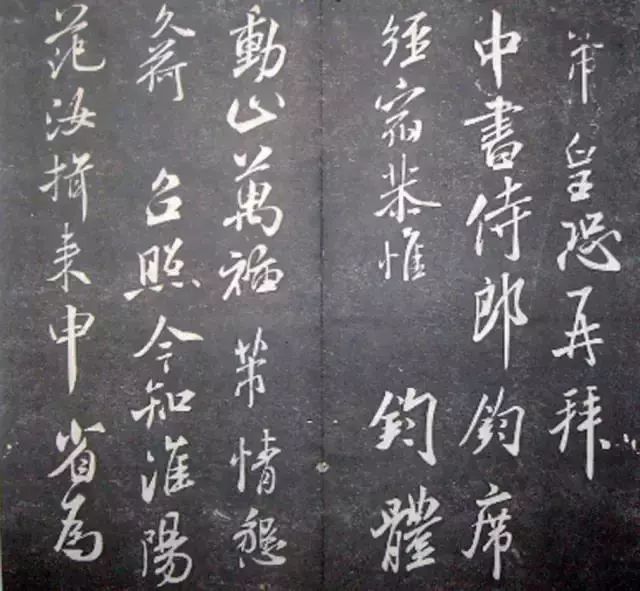 芾皇恐再拜
中書侍郎鈞席
經宿恭惟 鈞體
動止萬福 芾情懇
久荷 台照今知淮陽
范汝揖来申 省為